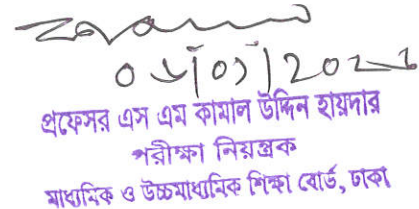 প্রফেসর এস এম কামাল উদ্দিন হায়দার
পরীক্ষা নিয়ন্ত্রক
মাধ্যমিক ও উচ্চমাধ্যমিক শিক্ষা বোর্ড, ঢাকা